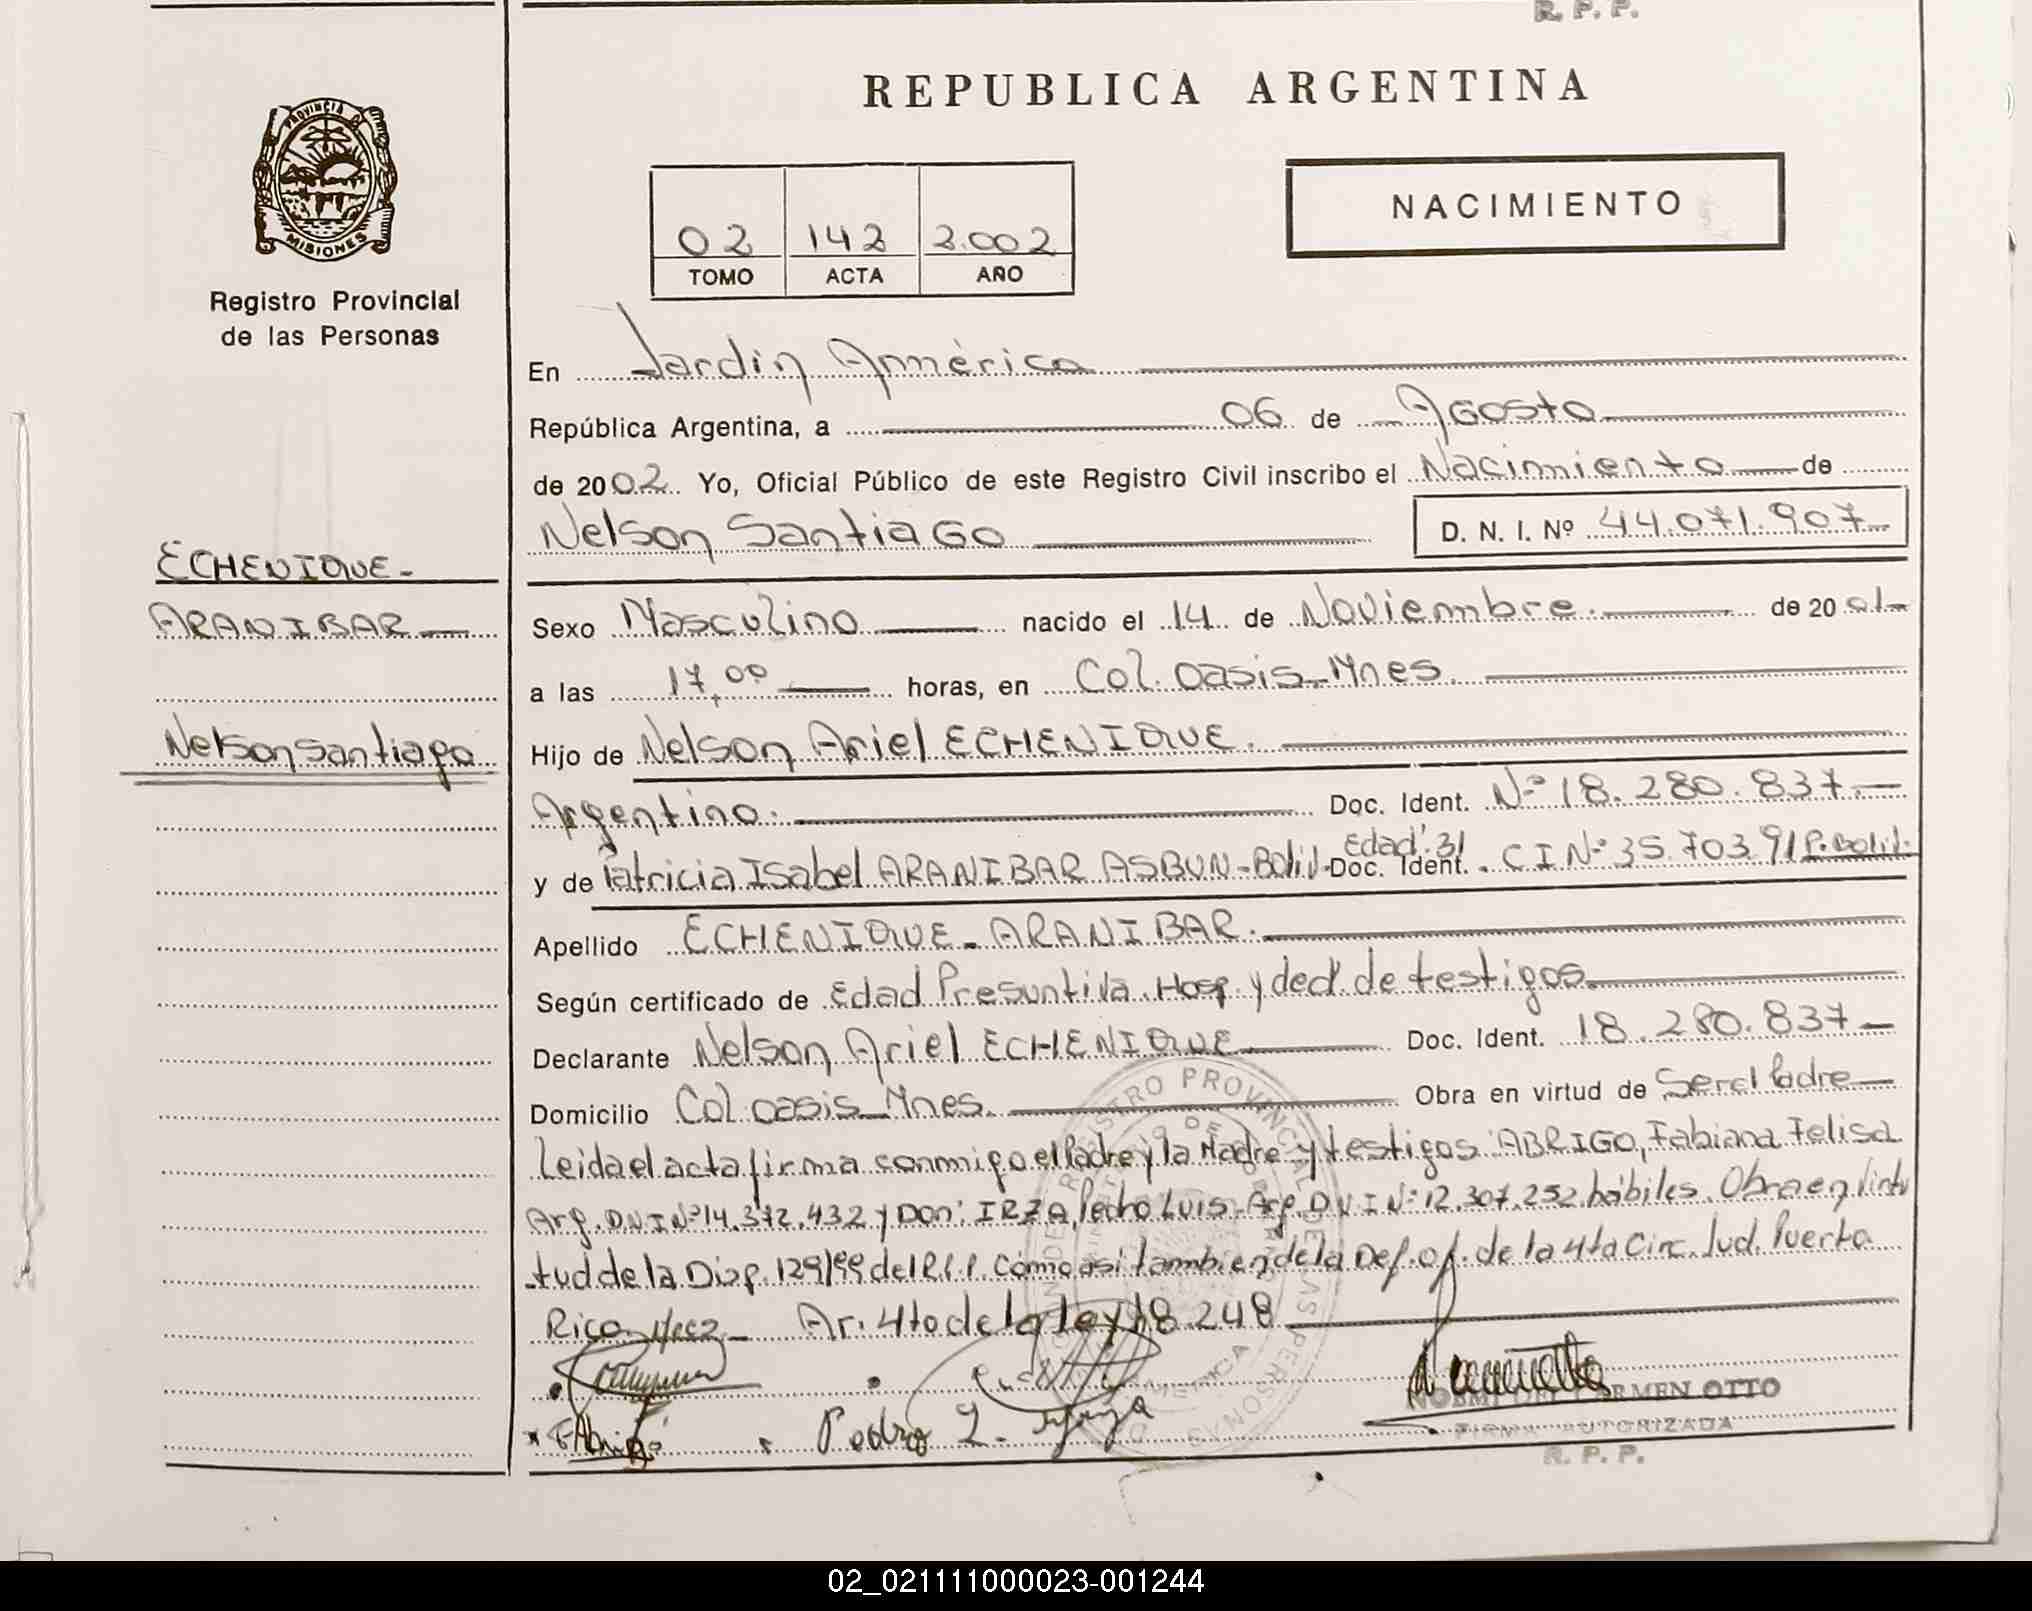 R. P. P.
REPUBLICA ARGENTINA
PROVINCIA DE
MISIONES
Registro Provincial
de las Personas
02 142 2.002
TOMO ACTA AÑO
NACIMIENTO
En Jardin América
República Argentina, a 06 de Agosto
de 2002 Yo, Oficial Público de este Registro Civil inscribo el Nacimiento de
Nelson Santiago D. N. I. Nº 44.071.907
ECHENIQUE-
ARANIBAR
Nelson Santiago
Sexo Masculino nacido el 14 de Noviembre de 2001
a las 17,00 horas, en Col. Oasis-Mnes.
Hijo de Nelson Ariel ECHENIQUE.
Argentino. Doc. Ident. Nº 18.280.837.-
Edad: 31
y de Patricia Isabel ARANIBAR ASBUN-Boliv. Doc. Ident. C I Nº 35.70391 P. Boliv.
Apellido ECHENIQUE-ARANIBAR.
Según certificado de Edad Presuntiva. Hosp. y decl. de testigos.
Declarante Nelson Ariel ECHENIQUE Doc. Ident. 18.280.837-
Domicilio Col. Oasis-Mnes. Obra en virtud de Ser el Padre
Leida el acta firma conmigo el Padre y la Madre y testigos: ABRIGO, Fabiana Felisa
Arg. D.N.I Nº 14.372.432 y Don: IRZA, Pedro Luis-Arg. D.N.I Nº 12.307.252 hábiles. Obra en virtu
tud de la Disp. 129/99 del R.P.P. Cómo asi tambien de la Def. of. de la 4ta Circ. Jud. Puerto
Rico Ar. 4to de la ley 18.248
REGISTRO PROVINCIAL DE LAS PERSONAS
Pedro L.
NOEMI DEL CARMEN OTTO
FIRMA AUTORIZADA
R. P. P.
02_021111000023-001244